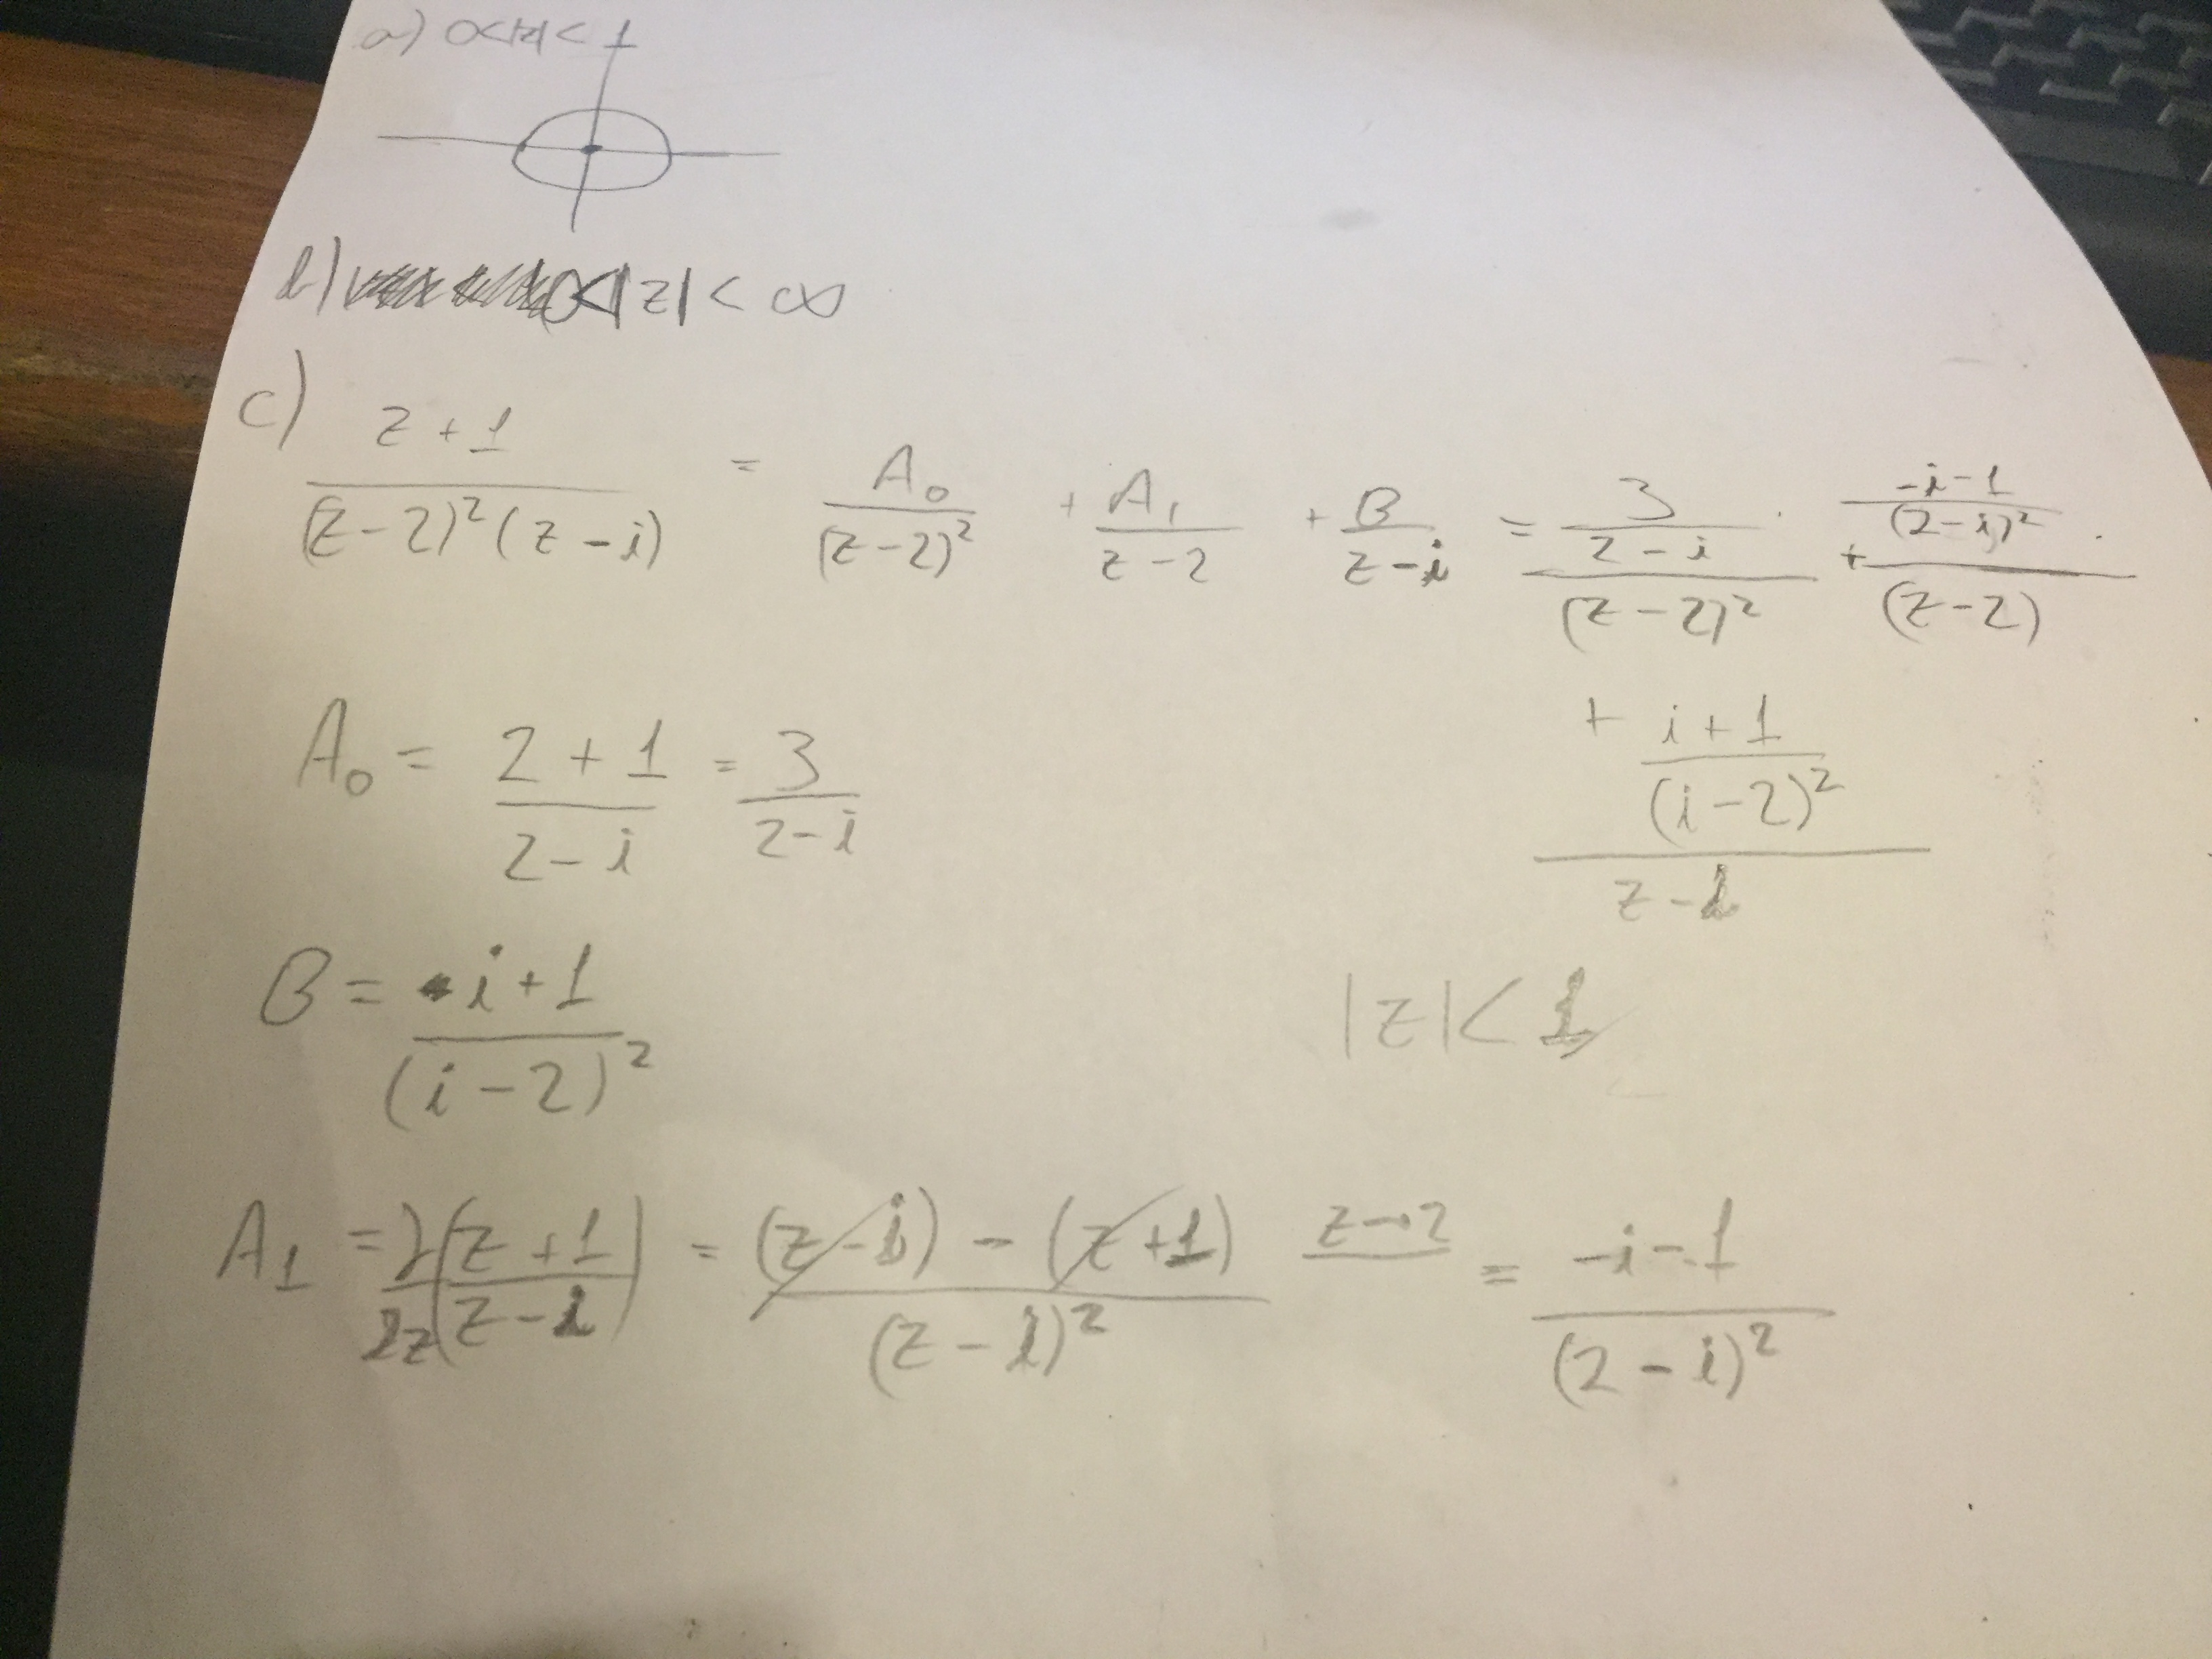 a) 0<|z|<1
b) 0<|z| < ∞
c) z + 1 / (z-2)²(z-i) = A₀ / (z-2)² + A₁ / z-2 + B / z-i = 3 / 2-i / (z-2)² + -i-1 / (2-i)² / (z-2)
+ i+1 / (i-2)² / z-i
A₀ = 2+1 / 2-i = 3 / 2-i
B = i+1 / (i-2)²
|z| < 1
A₁ = ∂ / ∂z (z+1 / z-i) = (z-i) - (z+1) / (z-i)² z→2 = -i-1 / (2-i)²